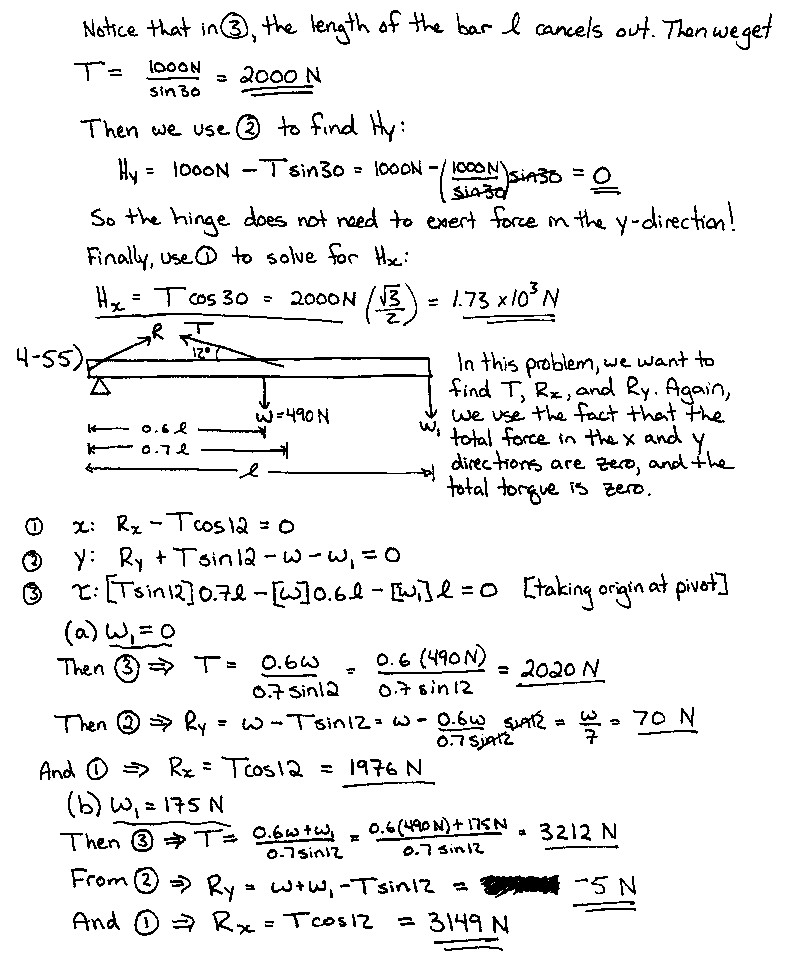 Notice that in ③, the length of the bar l cancels out. Then we get
T = 1000N / sin30 = 2000 N
Then we use ② to find Hy:
Hy = 1000N - T sin30 = 1000N - (1000N / sin30) sin30 = 0
So the hinge does not need to exert force in the y-direction!
Finally, use ① to solve for Hx:
Hx = T cos30 = 2000N (√3 / 2) = 1.73 x10³ N
4-55)
R T
12°
W=490N
W₁
0.6l
0.7l
l
In this problem, we want to
find T, Rx, and Ry. Again,
we use the fact that the
total force in the x and y
directions are zero, and the
total torque is zero.
① x: Rx - Tcos12 = 0
② y: Ry + Tsin12 - w - w₁ = 0
③ τ: [Tsin12] 0.7l - [w] 0.6l - [w₁] l = 0 [taking origin at pivot]
(a) w₁ = 0
Then ③ ⇒ T = 0.6w / 0.7 sin12 = 0.6 (490N) / 0.7 sin12 = 2020 N
Then ② ⇒ Ry = w - Tsin12 = w - 0.6w / 0.7 sin12 sin12 = w / 7 = 70 N
And ① ⇒ Rx = Tcos12 = 1976 N
(b) w₁ = 175 N
Then ③ ⇒ T = 0.6w + w₁ / 0.7 sin12 = 0.6(490N) + 175N / 0.7 sin12 = 3212 N
From ② ⇒ Ry = w + w₁ - Tsin12 = -5 N
And ① ⇒ Rx = Tcos12 = 3149 N